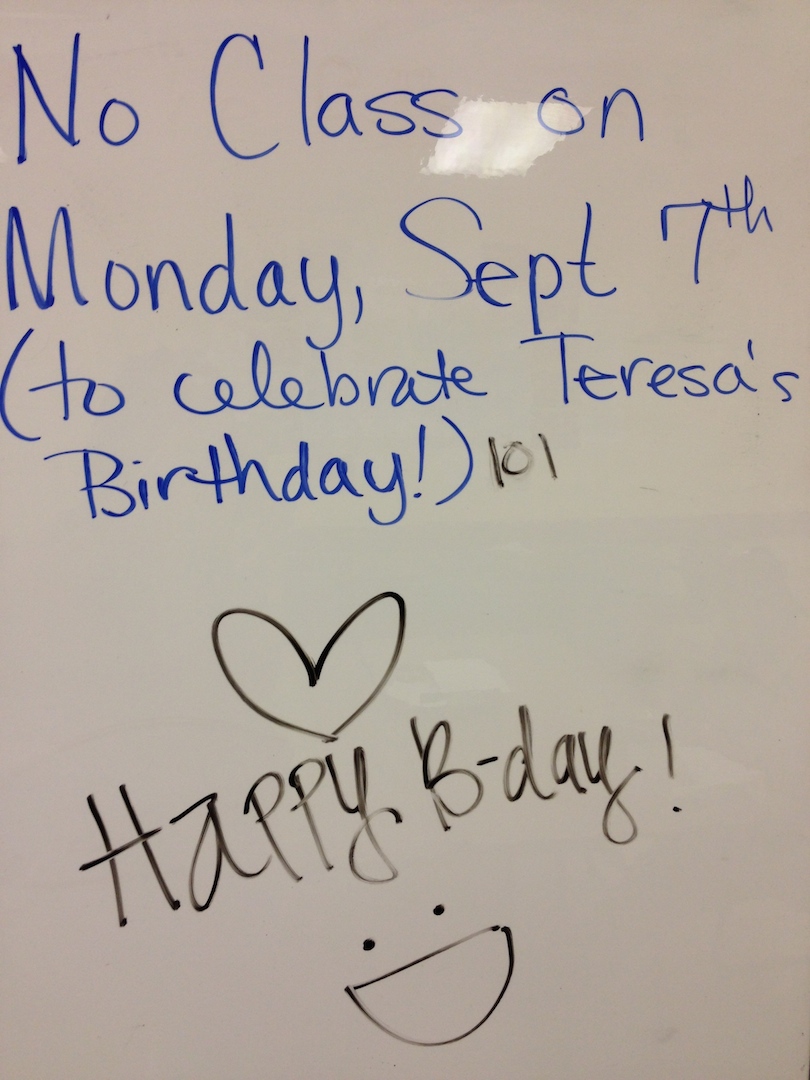 No Class on
Monday, Sept 7th
(to celebrate Teresa's
Birthday!) 101
Happy B-day!